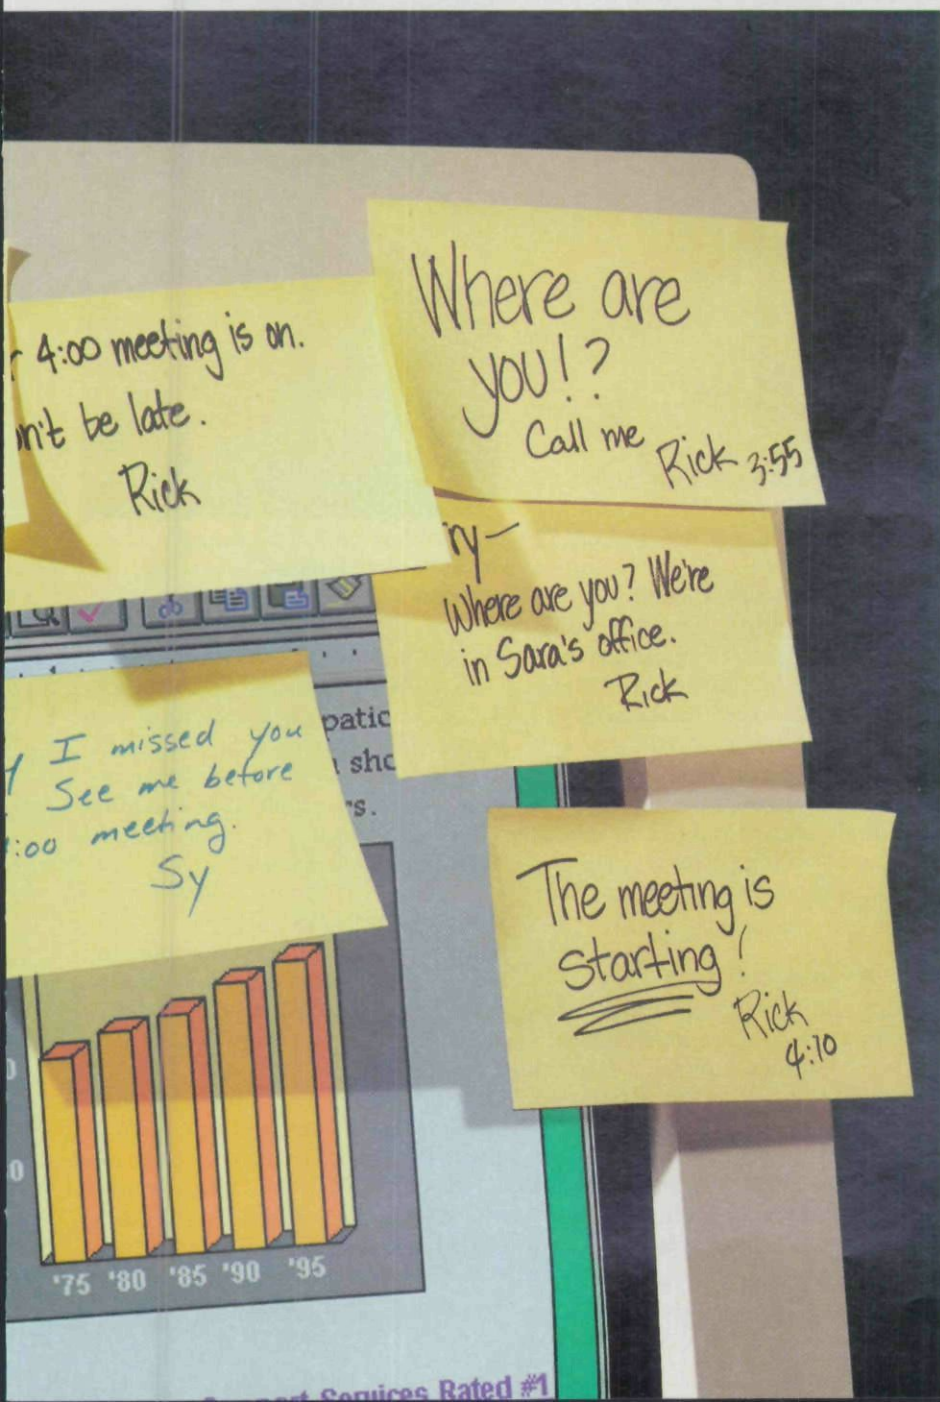 4:00 meeting is on.
be late.
Rick
Where are
you!?
Call me
Rick 3:55
Where are you? We're
in Sara's office.
Rick
I missed you
See me before
:00 meeting.
Sy
The meeting is
starting!
Rick
4:10
'75 '80 '85 '90 '95
Services Rated #1